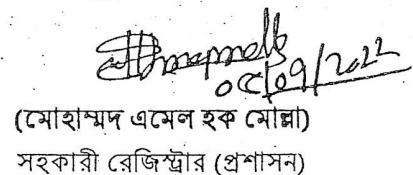 ০৫/০9/2022
(মোহাম্মদ এমেল হক মোল্লা)
সহকারী রেজিস্ট্রার (প্রশাসন)